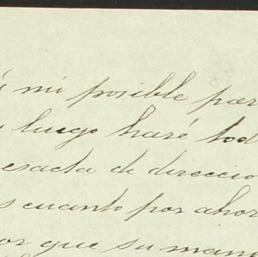 mi posible par
luego haré tod
esacta di direccio
s cuanto por ahor
or que su man